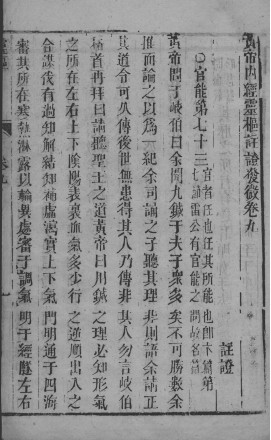 黃帝內經靈樞註證發微卷九
註證
○官能第七十三官者任也任其所能也卽下篇第七論雷公有官能之問故名篇
黃帝問于岐伯曰余聞九鍼于夫子衆多矣不可勝數余
推而論之以爲一紀余司誦之子聽其理非則語余請正
其道令可久傳後世無患得其人乃傳非其人勿言岐伯
稽首再拜曰請聽聖王之道黃帝曰用鍼之理必知形氣
之所在左右上下陰陽表裏血氣多少行之逆順出入之
合謀伐有過知解結知補虛瀉實上下氣門明通于四海
審其所在寒熱淋露以輸異處審于調氣明于經隧左右
卷九